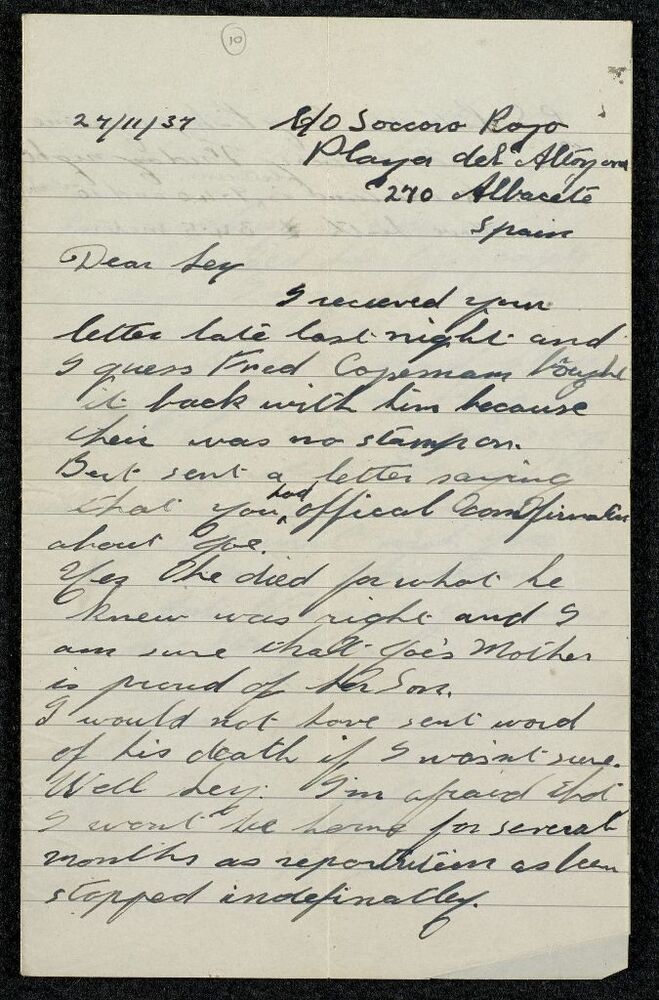 10
27/11/37 C/O Soccoro Rojo
Playa del Altozano
270 Albacete
Spain
Dear Ley
I recieved your
letter late last night and
I guess Fred Copeman bought
it back with him because
their was no stamp on.
But sent a letter saying
that you had offical Comfirmation
about Joe.
Yes he died for what he
knew was right and I
am sure that Joe's Mother
is proud of Her Son.
I would not have sent word
of his death if I wasnt sure.
Well Ley. I'm afraid that
I wont be home for several
months as repartriation as been
stopped indefinatley.